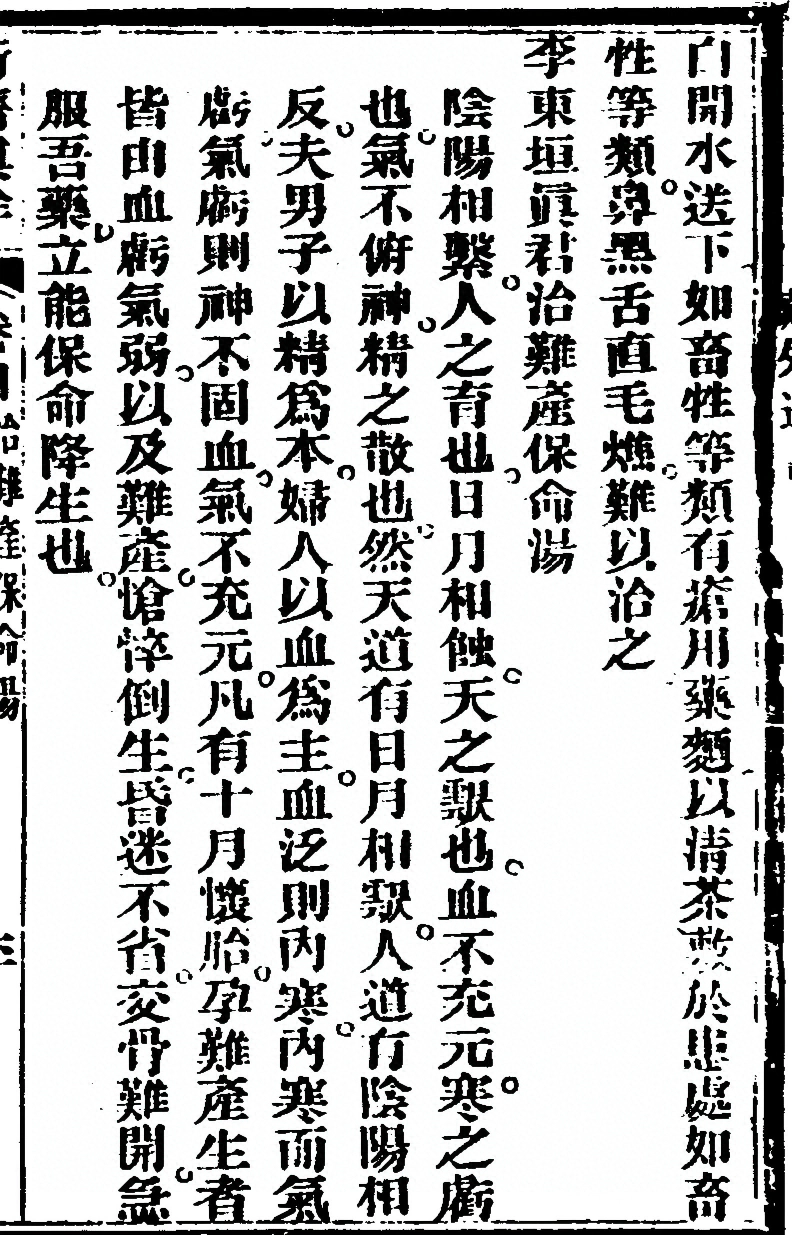 白開水送下如畜牲等類有瘡用藥麵以清茶敷於患處如畜
牲等類鼻黑舌直毛燋難以治之
李東垣眞君治難產保命湯
陰陽相繫人之育也日月相蝕天之歇也血不充元寒之虧
也氣不俯神精之散也然天道有日月相歇人道有陰陽相
反夫男子以精爲本婦人以血爲主血泛則內寒內寒而氣
虧氣虧則神不固血氣不充元凡有十月懷胎孕難產生者
皆由血虧氣弱以及難產愴悴倒生昏迷不省交骨難開急
服吾藥立能保命降生也
治難產保命湯